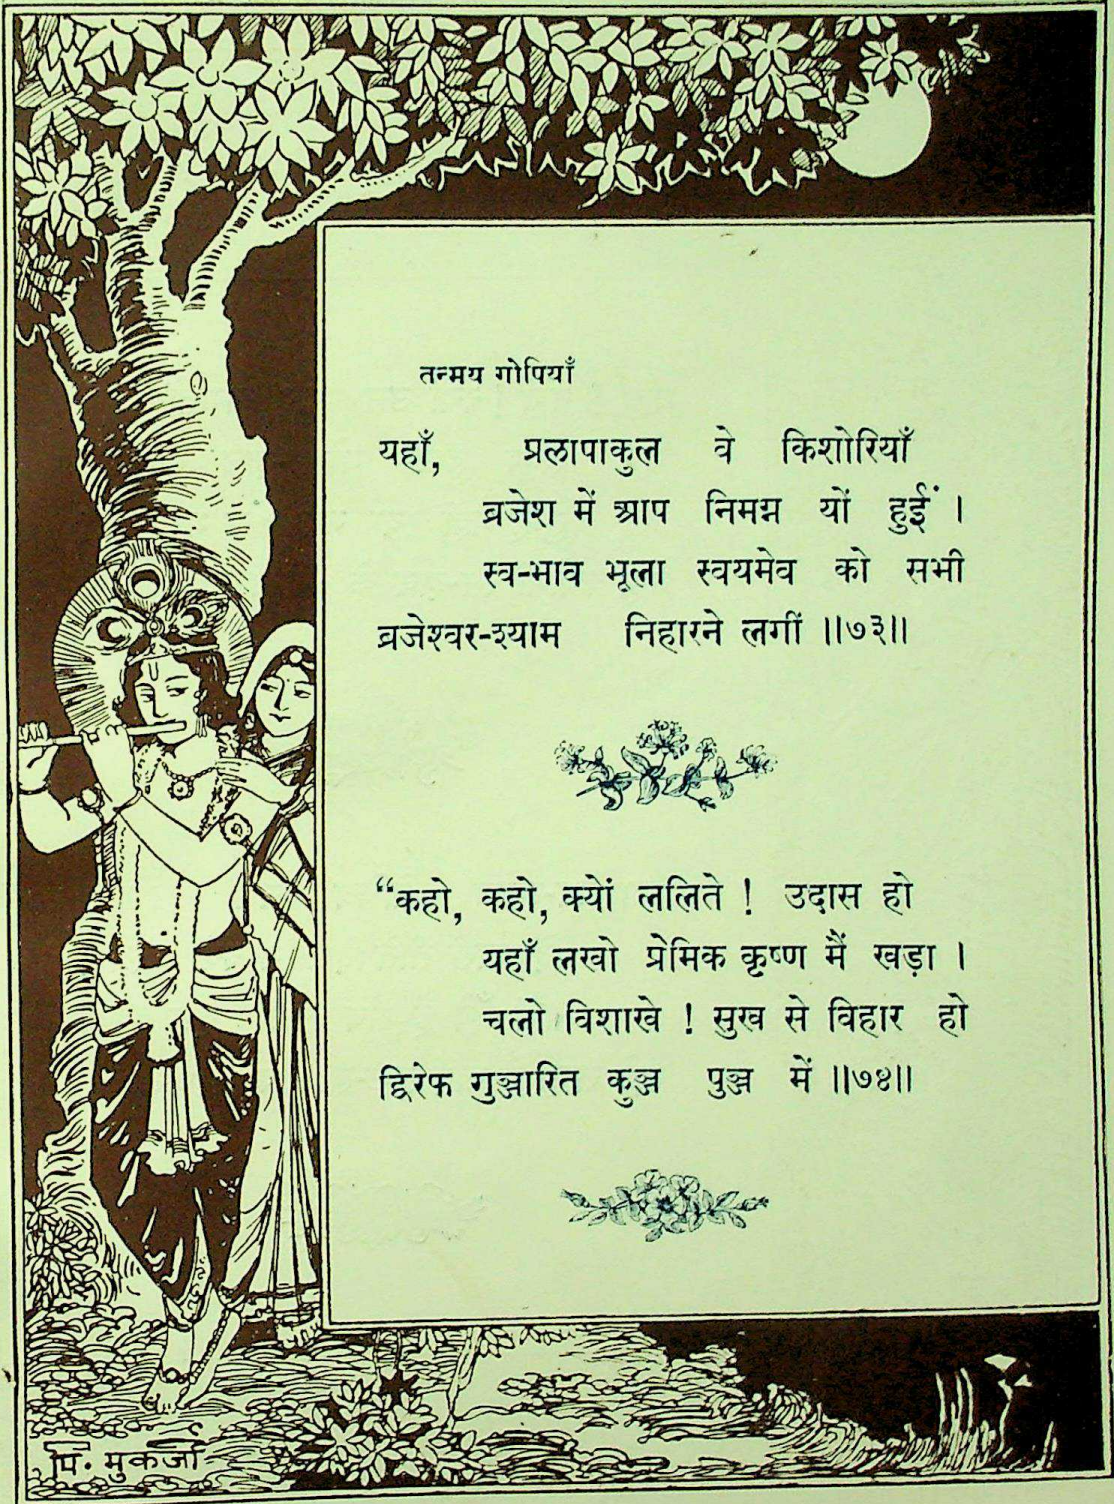 तन्मय गोपियाँ
यहाँ, प्रलापाकुल वे किशोरियाँ
ब्रजेश में आप निमग्न यों हुईं ।
स्व-भाव भूला स्वयमेव को सभी
ब्रजेश्वर-श्याम निहारने लगीं ॥७३॥
“कहो, कहो, क्यों ललिते ! उदास हो
यहाँ लखो प्रेमिक कृष्ण मैं खड़ा ।
चलो विशाखे ! सुख से विहार हो
द्विरेफ गुञ्जारित कुञ्ज पुञ्ज में ॥७४॥
पि. मुकर्जी